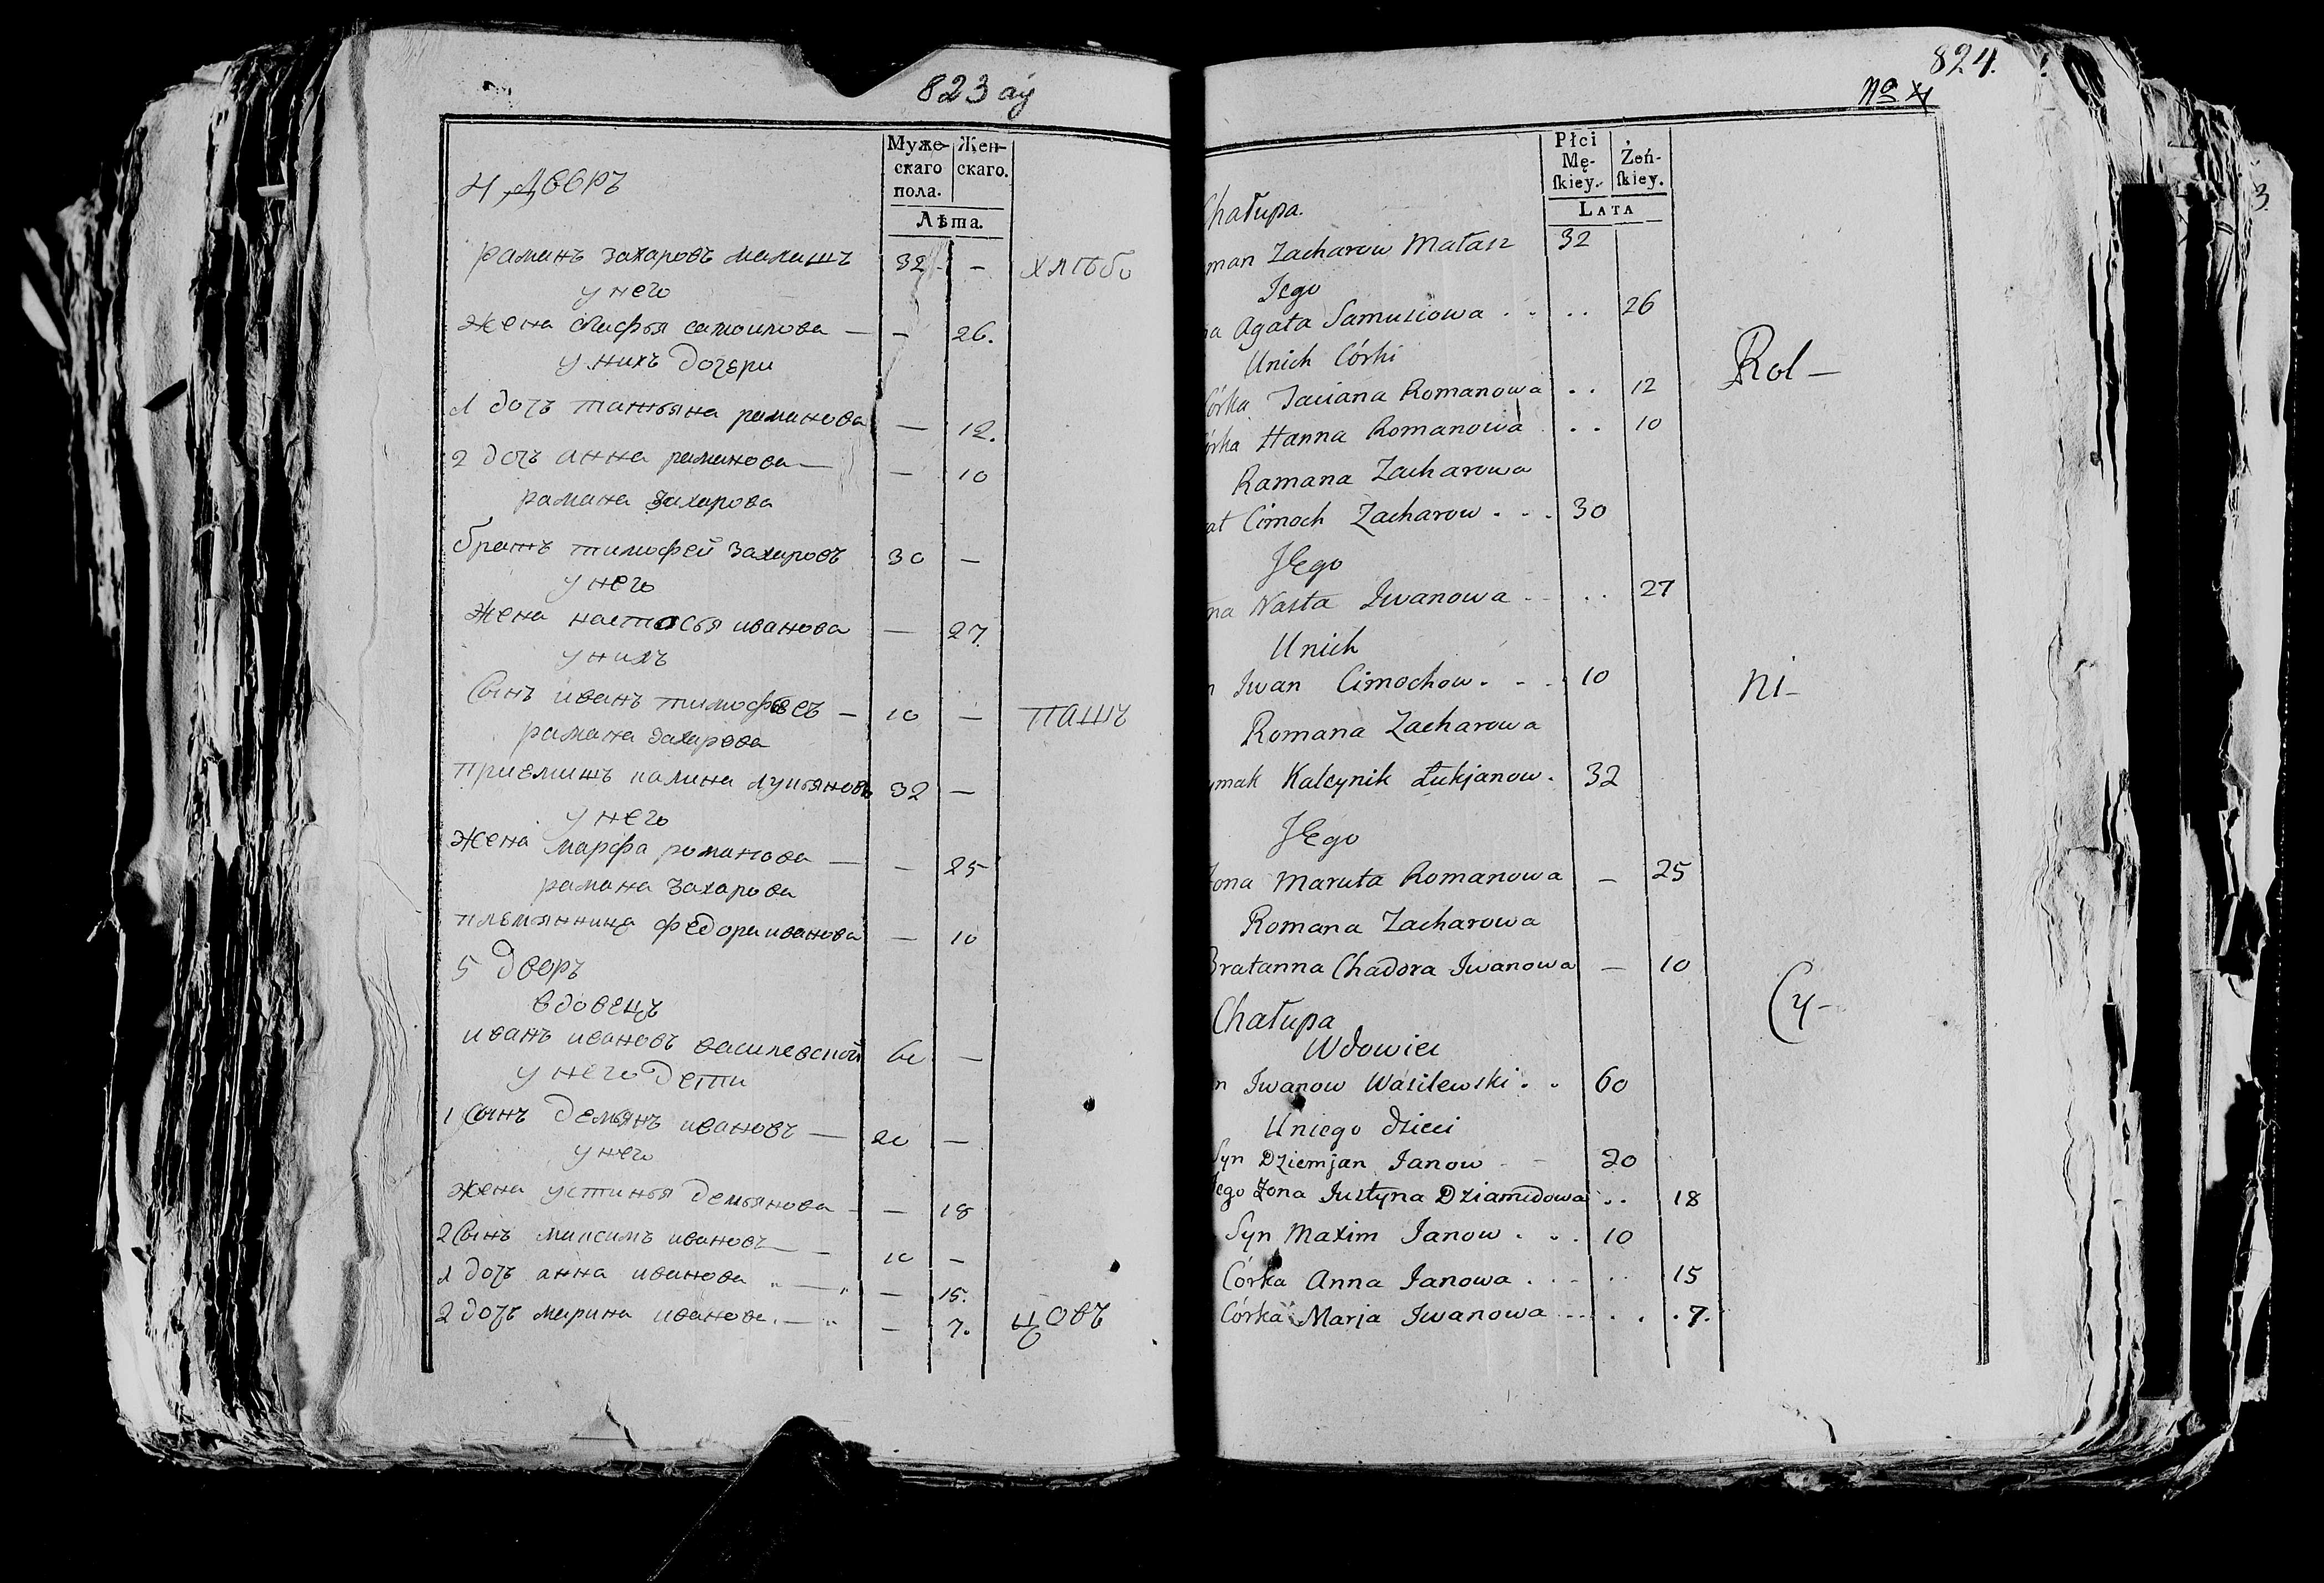 823 ау
Муже-
скаго
пола.
Жен-
скаго.
Лѣта.
4 дворъ
раманъ захаровъ малашъ 32 — хлѣбо
у него
жена агафья самоилова — — 26.
у нихъ дочери
1 дочъ татьяна раманова — 12.
2 дочъ анна раманова — — 10
рамана захарова
братъ тимофей захаровъ 30 —
у него
жена настасья иванова — 27.
у нихъ
сынъ иванъ тимофѣевъ — 10 — пашъ
рамана захарова
приемышъ калина лукьяновъ 32 —
у него
жена марфа романова — — 25
рамана захарова
племянница федора иванова — 10
5 дворъ
вдовецъ
иванъ ивановъ василевской 60 —
у него дети
1 сынъ демьянъ ивановъ — 20 —
у него
жена устинья демьянова — — 18
2 сынъ максимъ ивановъ — 10 —
1 дочъ анна иванова — — 15.
2 дочъ марина иванова — — 7. цовъ
824.
No
Płci
Mę-
ſkiey.
Żeń-
ſkiey.
LATA
Chałupa.
man Zacharow Małasz 32
Jego
na Agata Samusiowa . . . . 26
Unich Córki
Rol-
Córka Taciana Romanowa . . 12
Córka Hanna Romanowa . . 10
Ramana Zacharowa
at Cimoch Zacharow . . . 30
Jego
na Nasta Iwanowa . . . . 27
Unich
n Iwan Cimochow . . . 10
ni-
Romana Zacharowa
ymak Kalcynik Łukjanow . 32
Jego
Żona Maruta Romanowa — 25
Romana Zacharowa
Bratanna Chadora Iwanowa — 10
Cy-
Chałupa
Wdowiec
n Iwanow Wasilewski . . 60
Uniego dzieci
Syn Dziemjan Janow - - 20
Jego Żona Justyna Dziamidowa . . 18
Syn Maxim Janow . . . 10
Córka Anna Janowa . . . . . 15
Córka Marja Iwanowa . . . . . 7.